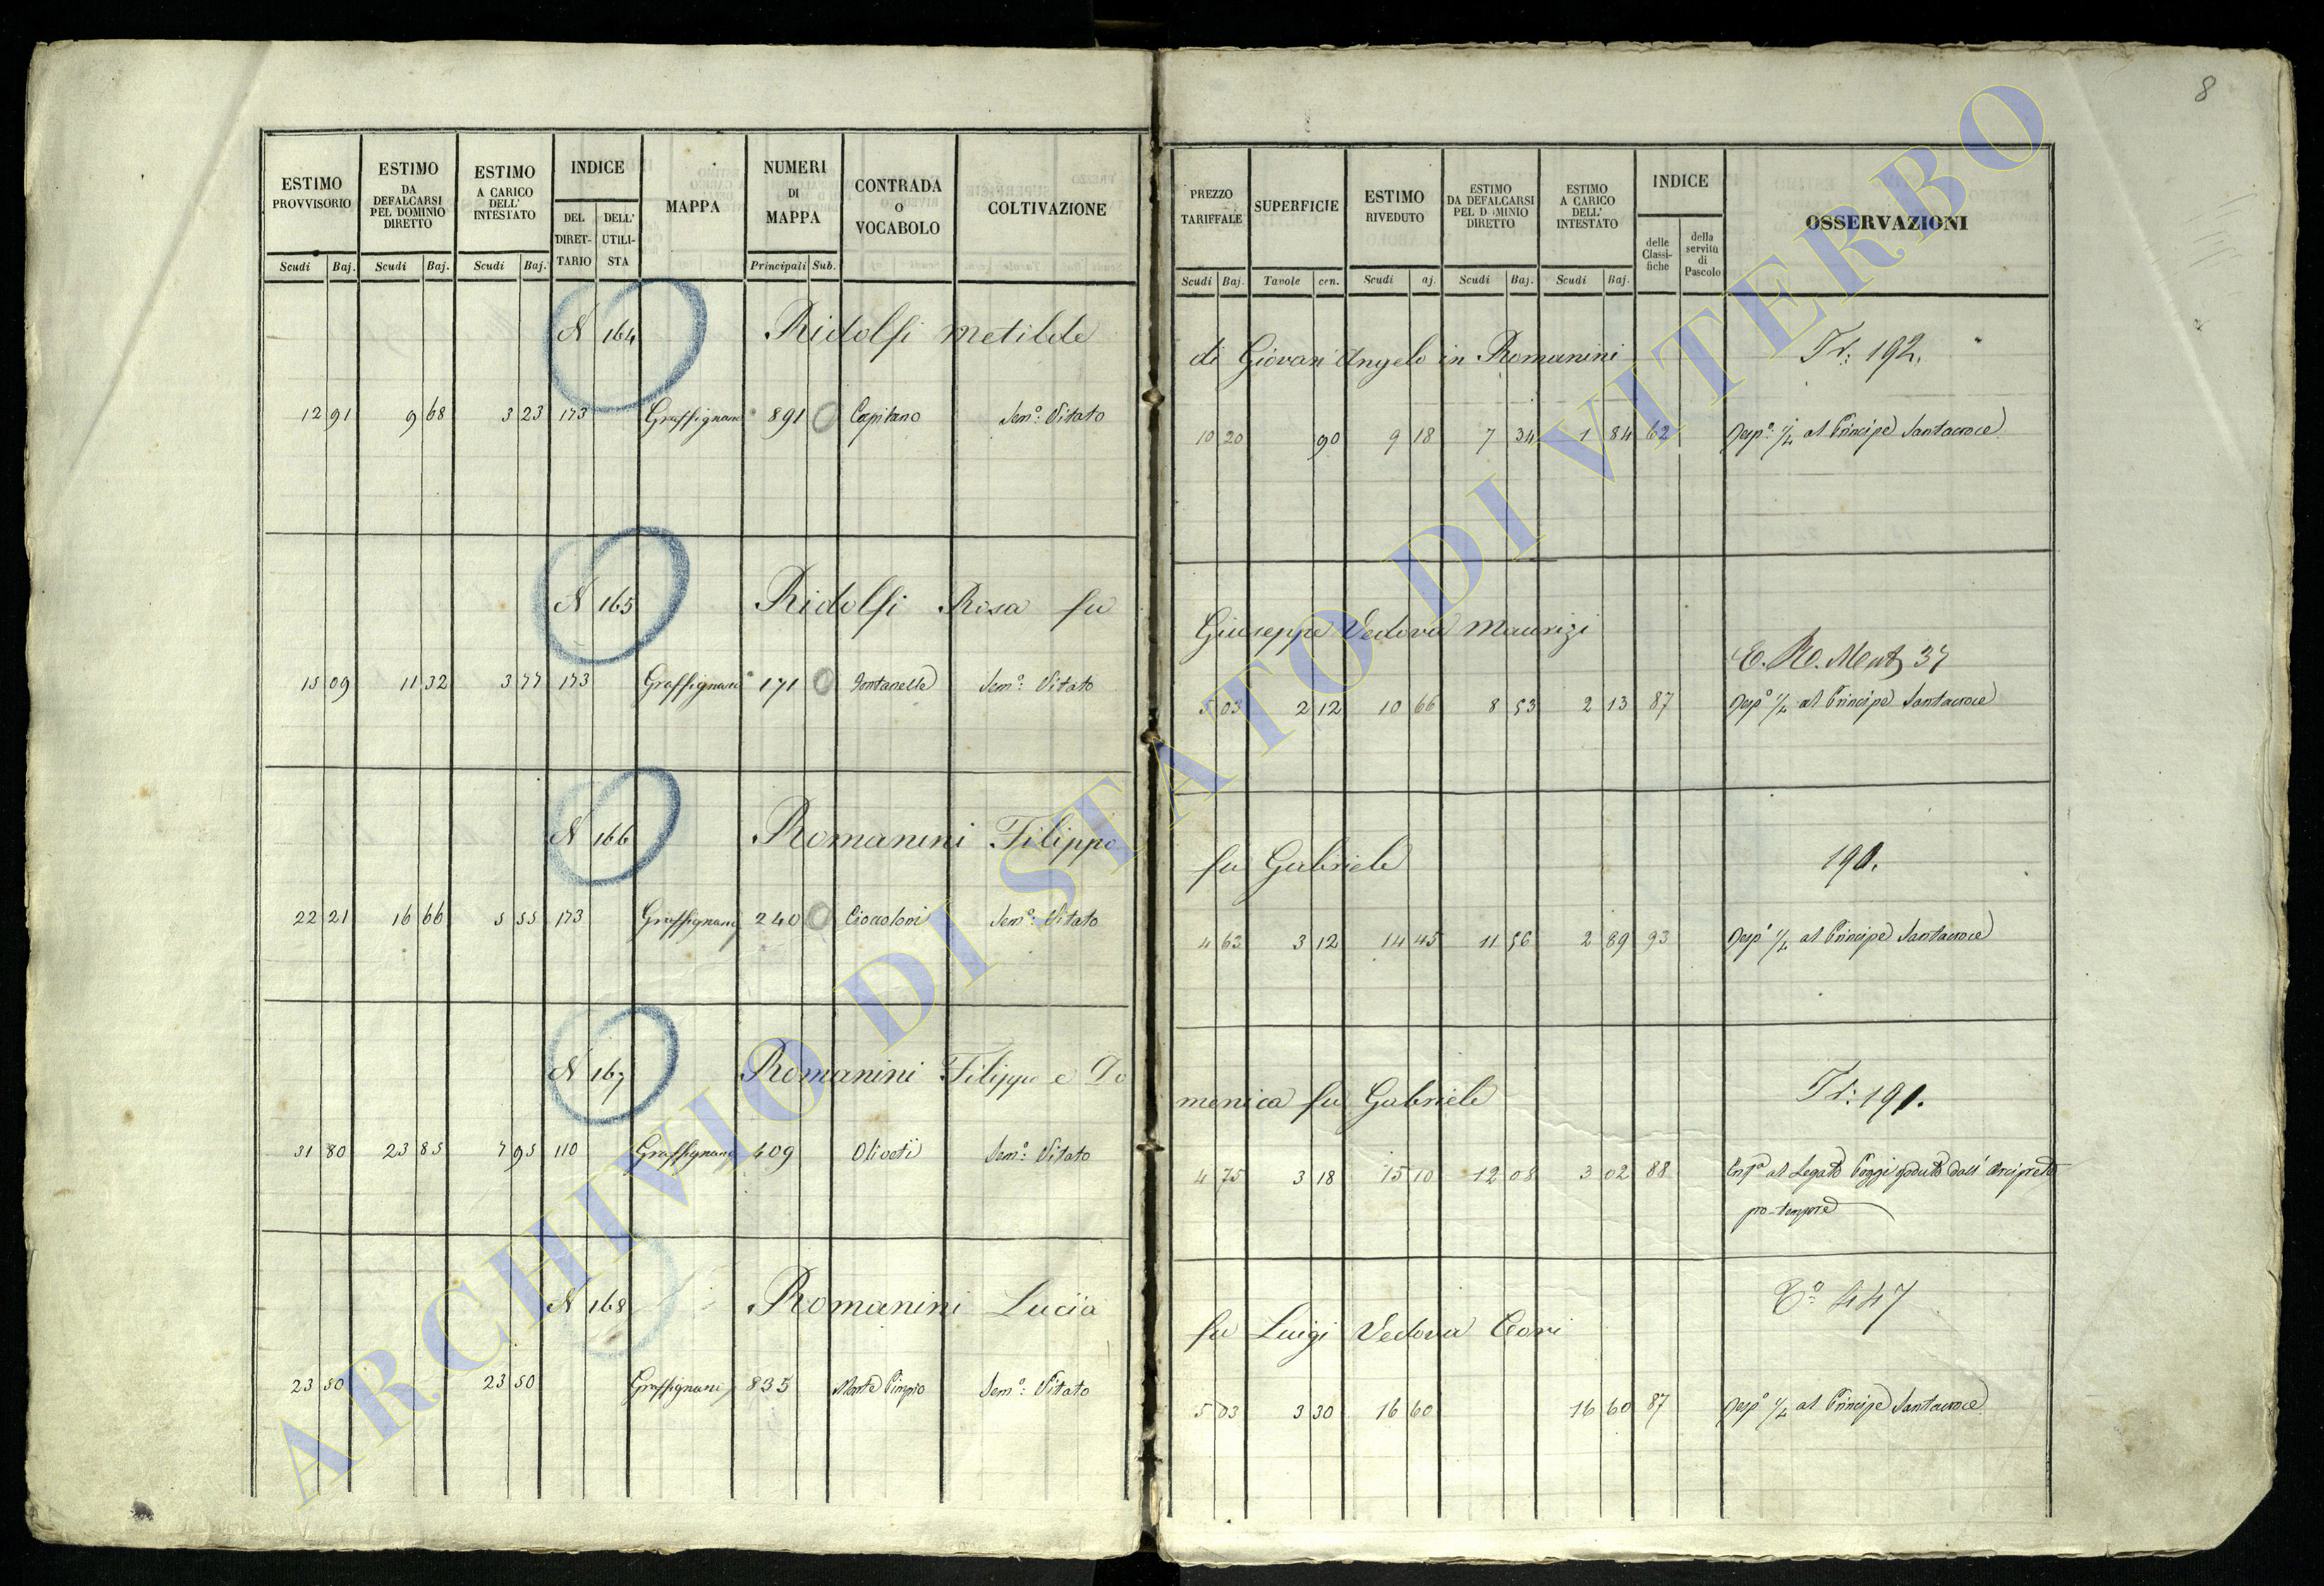 8
ESTIMO PROVVISORIO
ESTIMO DA DEFALCARSI PEL DOMINIO DIRETTO
ESTIMO A CARICO DELL' INTESTATO
INDICE
DEL DIRET-TARIO
DELL' UTILI-STA
MAPPA
NUMERI DI MAPPA
CONTRADA O VOCABOLO
COLTIVAZIONE
Scudi Baj. Scudi Baj. Scudi Baj. Principali Sub.
PREZZO TARIFFALE
SUPERFICIE
ESTIMO RIVEDUTO
ESTIMO DA DEFALCARSI PEL DOMINIO DIRETTO
ESTIMO A CARICO DELL' INTESTATO
INDICE
delle Classi-fiche
della servitù di Pascolo
OSSERVAZIONI
Scudi Baj. Tavole cen. Scudi aj. Scudi Baj. Scudi Baj.
N 164 Ridolfi Metilde di Giovan Angelo in Romanini Tr: 192.
12 91 9 68 3 23 173 Graffignano 891 Capitano Sem.º Vitato 10 20 90 9 18 7 34 1 84 62 Resp.º ¼ al Principe Santacroce
N 165 Ridolfi Rosa fu Giuseppe Vedova Maurizi
15 09 11 32 3 77 173 Graffignano 171 Fontanelle Sem.º Vitato 5 03 2 12 10 66 8 53 2 13 87 Resp.º ¼ al Principe Santacroce
N 166 Romanini Filippo fu Gabriele 190.
22 21 16 66 5 55 173 Graffignano 240 Cioccoloni Sem.º Vitato 4 63 3 12 14 45 11 56 2 89 93 Resp.º ¼ al Principe Santacroce
N 167 Romanini Filippo e Do menica fu Gabriele Tr: 191.
31 80 23 85 7 95 110 Graffignano 409 Oliveti Sem.º Vitato 4 75 3 18 15 10 12 08 3 02 88 al Legato Poggi goduto dall' Arciprete
pro-tempore
N 168 Romanini Lucia fu Luigi Vedova Cori 447
23 50 23 50 Graffignano 835 Monte Sem.º Vitato 5 03 3 30 16 60 16 60 87 Resp.º ¼ al Principe Santacroce
ARCHIVIO DI STATO DI VITERBO